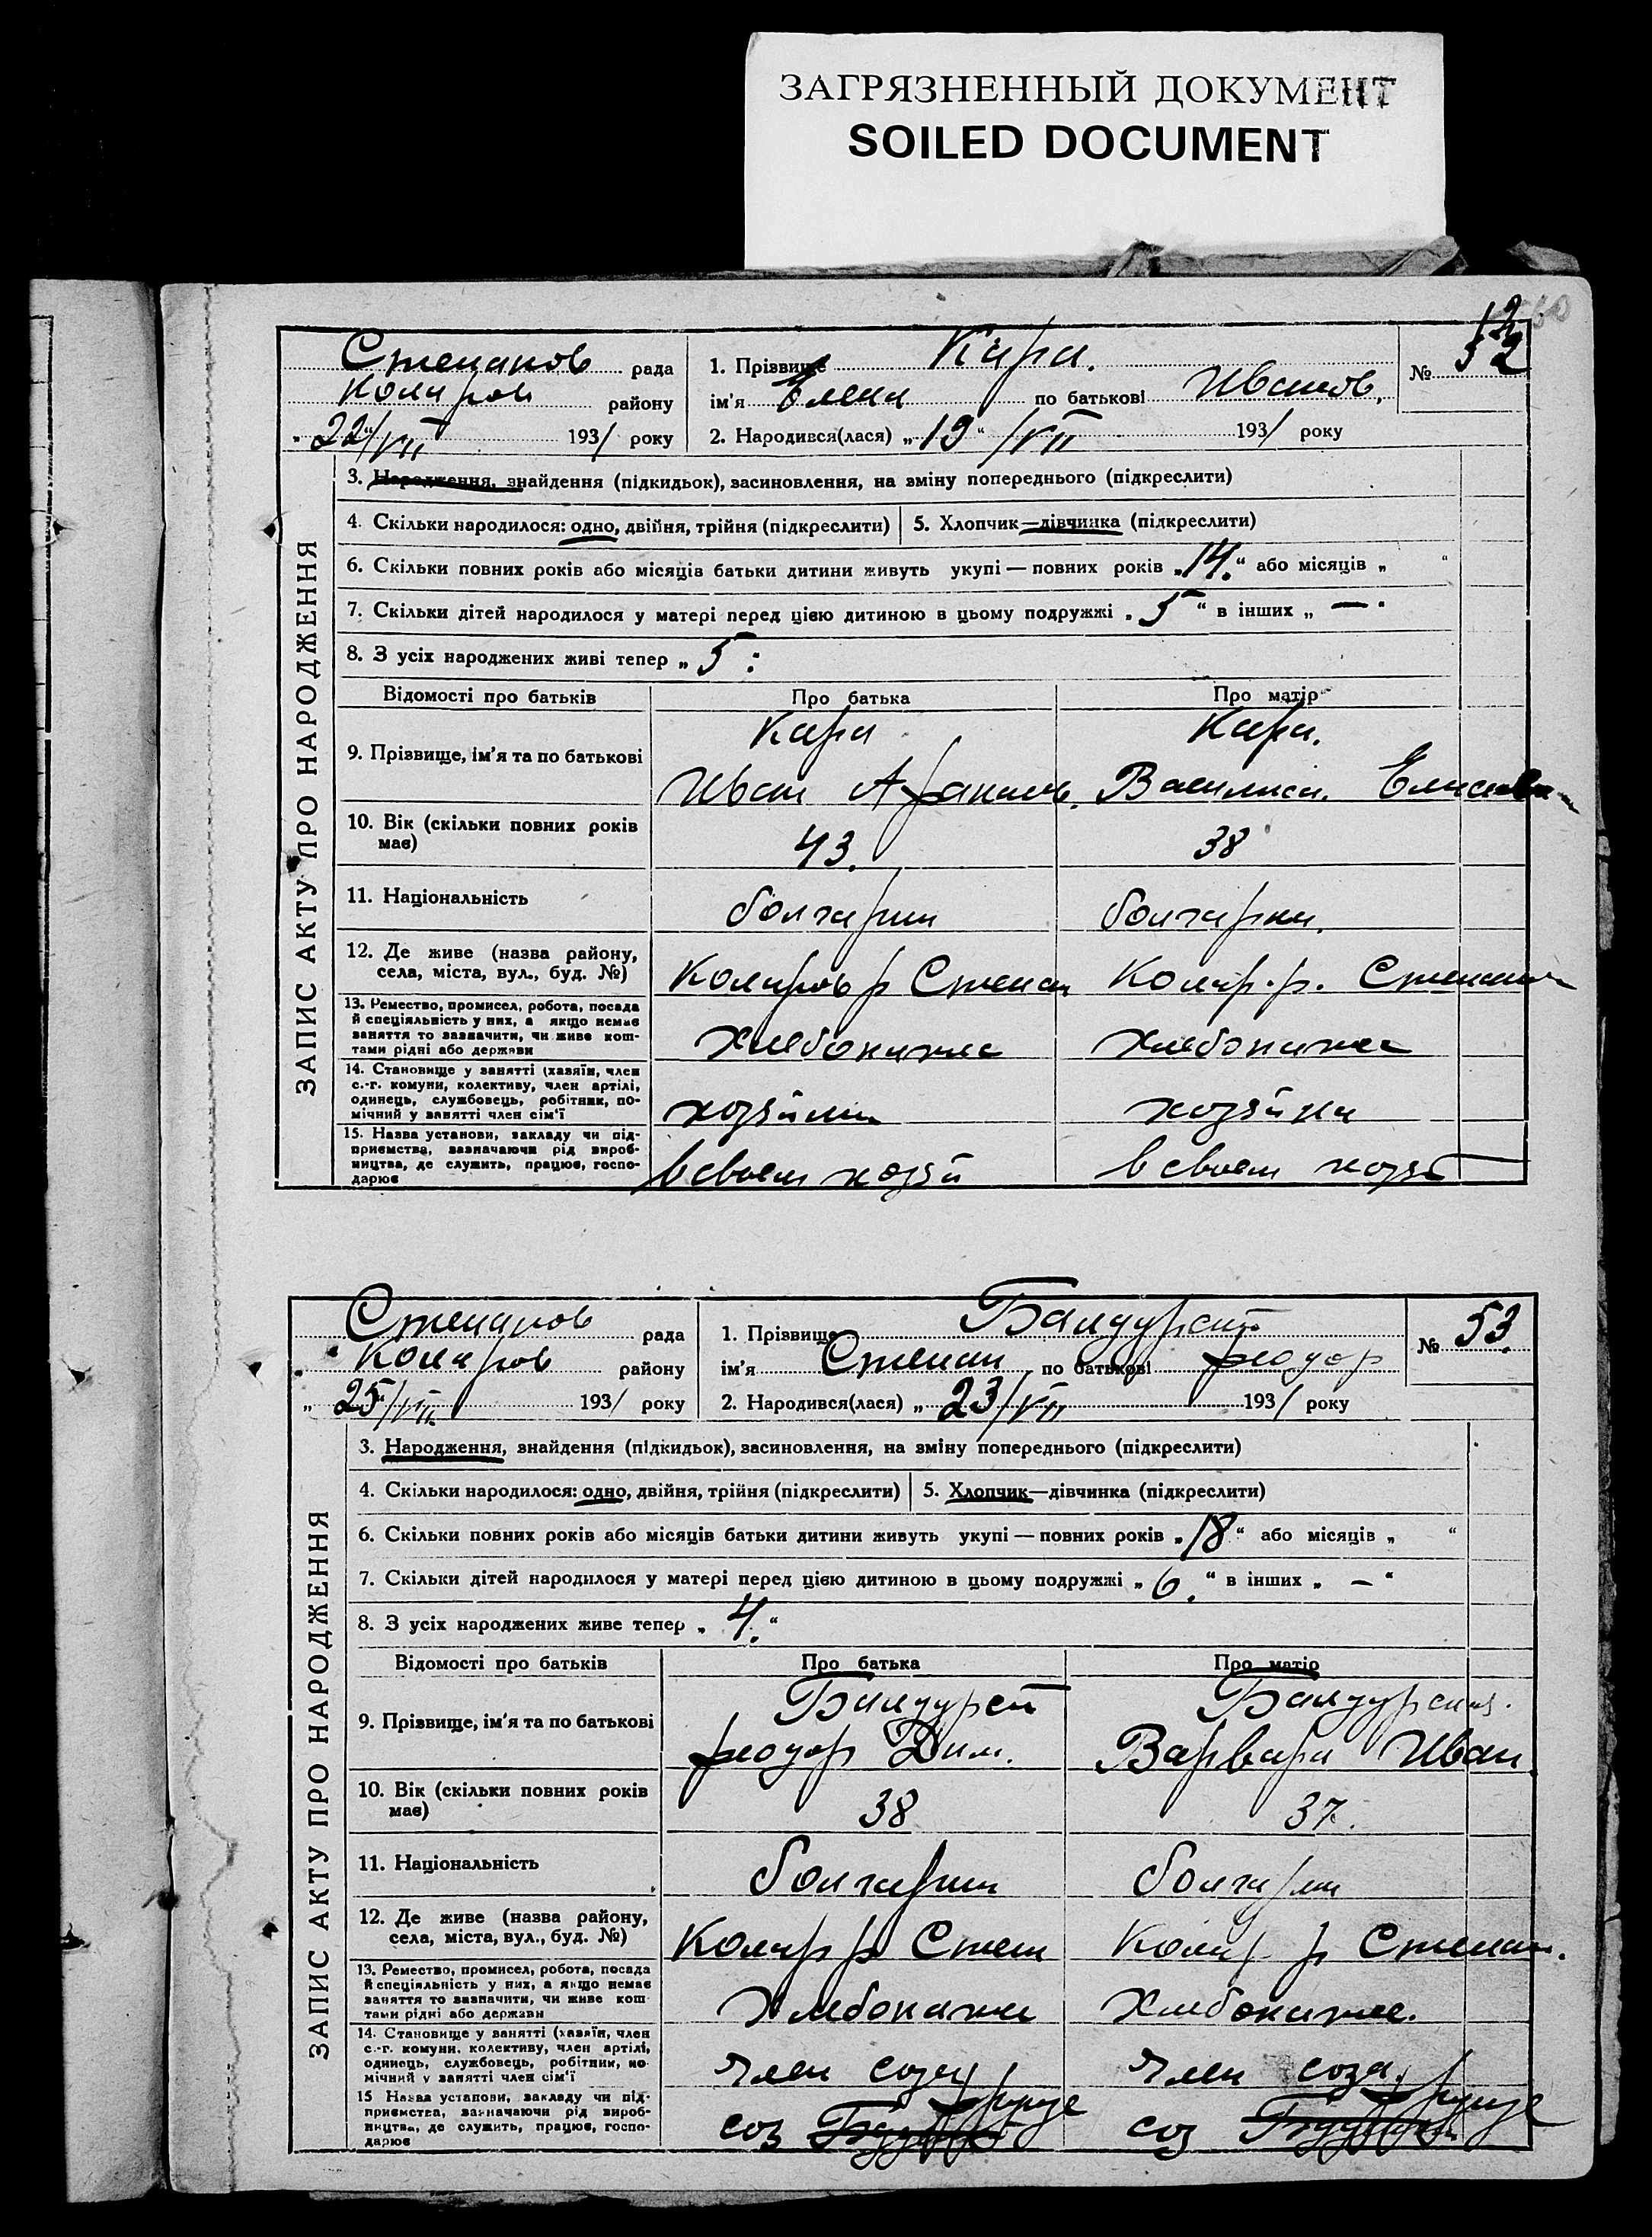 ЗАГРЯЗНЕННЫЙ ДОКУМЕНТ
SOILED DOCUMENT
Степанов рада
Коларов району
„22“/VII 1931 року
1. Прізвище Кара.
ім'я Елена по батькові Иванов.
2. Народився(лася) „19“/VII 1931 року
№ 52
ЗАПИС АКТУ ПРО НАРОДЖЕННЯ
3. Народження, знайдення (підкидьок), засиновлення, на зміну попереднього (підкреслити)
4. Скільки народилося: одно, двійня, трійня (підкреслити) 5. Хлопчик—дівчинка (підкреслити)
6. Скільки повних років або місяців батьки дитини живуть укупі — повних років „14.“ або місяців „ “
7. Скільки дітей народилося у матері перед цією дитиною в цьому подружжі „5“ в інших „—“
8. З усіх народжених живі тепер „5:
Відомості про батьків Про батька Про матір
Кара Кара.
9. Прізвище, ім'я та по батькові
Иван Афанасъ. Василиса.
10. Вік (скільки повних років
має) 43. 38
11. Національність болгарин болгарка.
12. Де живе (назва району,
села, міста, вул., буд. №) Коларов р Степан Колар. р. Степан
13. Ремество, промисел, робота, посада
й спеціяльність у них, а якщо немає
заняття то зазначити, чи живе кош-
тами рідні або держави
Хлебопашес Хлебопашес
14. Становище у занятті (хазяїн, член
с.-г. комуни, колективу, член артілі,
одинець, службовець, робітник, по-
мічний у занятті член сім'ї
хозяин хозяйка
15. Назва установи, закладу чи під-
приємства, зазначаючи рід вироб-
ництва, де служить, працює, госпо-
дарює
в своем хозяй в своем хозяй
Степанов рада
Коларов району
„25“/VII 1931 року
1. Прізвище
ім'я Степан по батькові Феодор
2. Народився(лася) „23/VII 1931 року
№ 53.
ЗАПИС АКТУ ПРО НАРОДЖЕННЯ
3. Народження, знайдення (підкидьок), засиновлення, на зміну попереднього (підкреслити)
4. Скільки народилося: одно, двійня, трійня (підкреслити) 5. Хлопчик—дівчинка (підкреслити)
6. Скільки повних років або місяців батьки дитини живуть укупі — повних років „18“ або місяців „ “
7. Скільки дітей народилося у матері перед цією дитиною в цьому подружжі „6.“ в інших „—“
8. З усіх народжених живе тепер „4.“
Відомості про батьків Про батька Про матір
9. Прізвище, ім'я та по батькові
Феодор Дим. Варвара Иван
10. Вік (скільки повних років
має) 38 37.
11. Національність болгарин болгарки
12. Де живе (назва району,
села, міста, вул., буд. №) Колар р Степ Колар р Степан.
13. Ремество, промисел, робота, посада
й спеціяльність у них, а якщо немає
заняття то зазначити, чи живе кош-
тами рідні або держави
Хлебопаше Хлебопашес.
14. Становище у занятті (хазяїн, член
с.-г. комуни, колективу, член артілі,
одинець, службовець, робітник, по-
мічний у занятті член сім'ї
член соза член соза
15 Назва установи, закладу чи під-
приємства, зазначаючи рід вироб-
ництва, де служить, працює, госпо-
дарює
соз соз